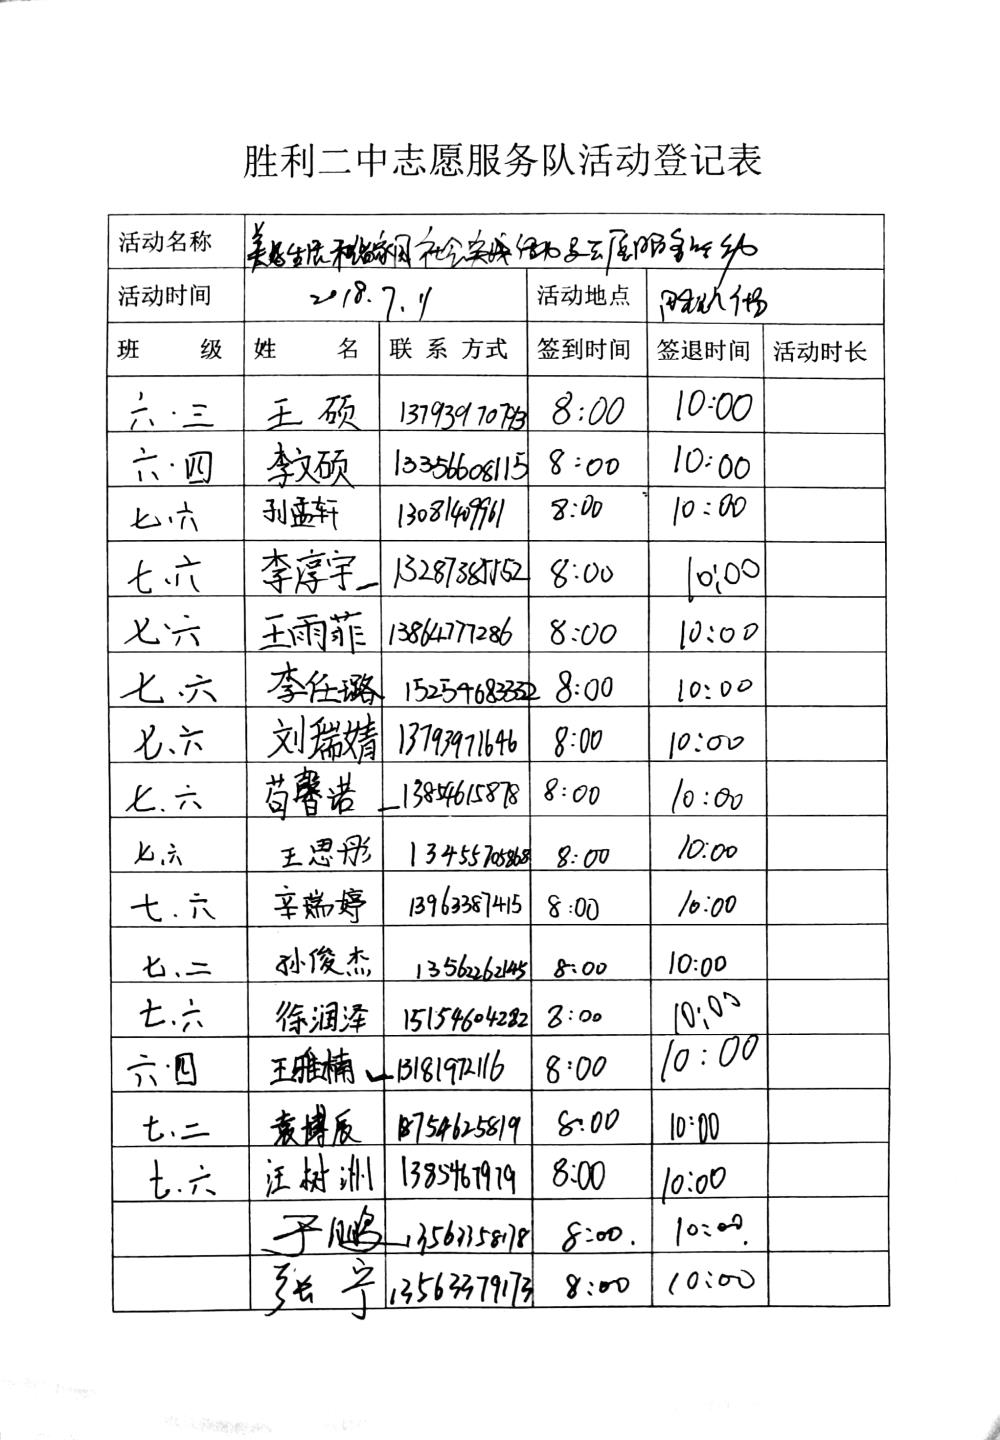 胜利二中志愿服务队活动登记表
活动名称 美好生活 和谐家园 社会实践活动
活动时间 2018.7.11 活动地点
班 级 姓 名 联 系 方式 签到时间 签退时间 活动时长
六·三 王硕 13793970793 8:00 10:00
六·四 李文硕 13356608115 8:00 10:00
七.六 孙孟轩 13081409961 8:00 10:00
七.六 李淳宇 13287385552 8:00 10:00
七.六 王雨菲 13864777286 8:00 10:00
七.六 李任璐 15254683332 8:00 10:00
七.六 刘瑞婧 13793971646 8:00 10:00
七.六 苟馨诺 13854615878 8:00 10:00
七.六 王思彤 13455705868 8:00 10:00
七.六 辛瑞婷 13963387415 8:00 10:00
七.二 孙俊杰 13562262145 8:00 10:00
七.六 徐润泽 15154604282 8:00 10:00
六·四 王雅楠 13181972116 8:00 10:00
七.二 袁博辰 18754625819 8:00 10:00
七.六 汪树洲 1385467979 8:00 10:00
于鹏 8:00. 10:00.
张宁 13563379173 8:00 10:00